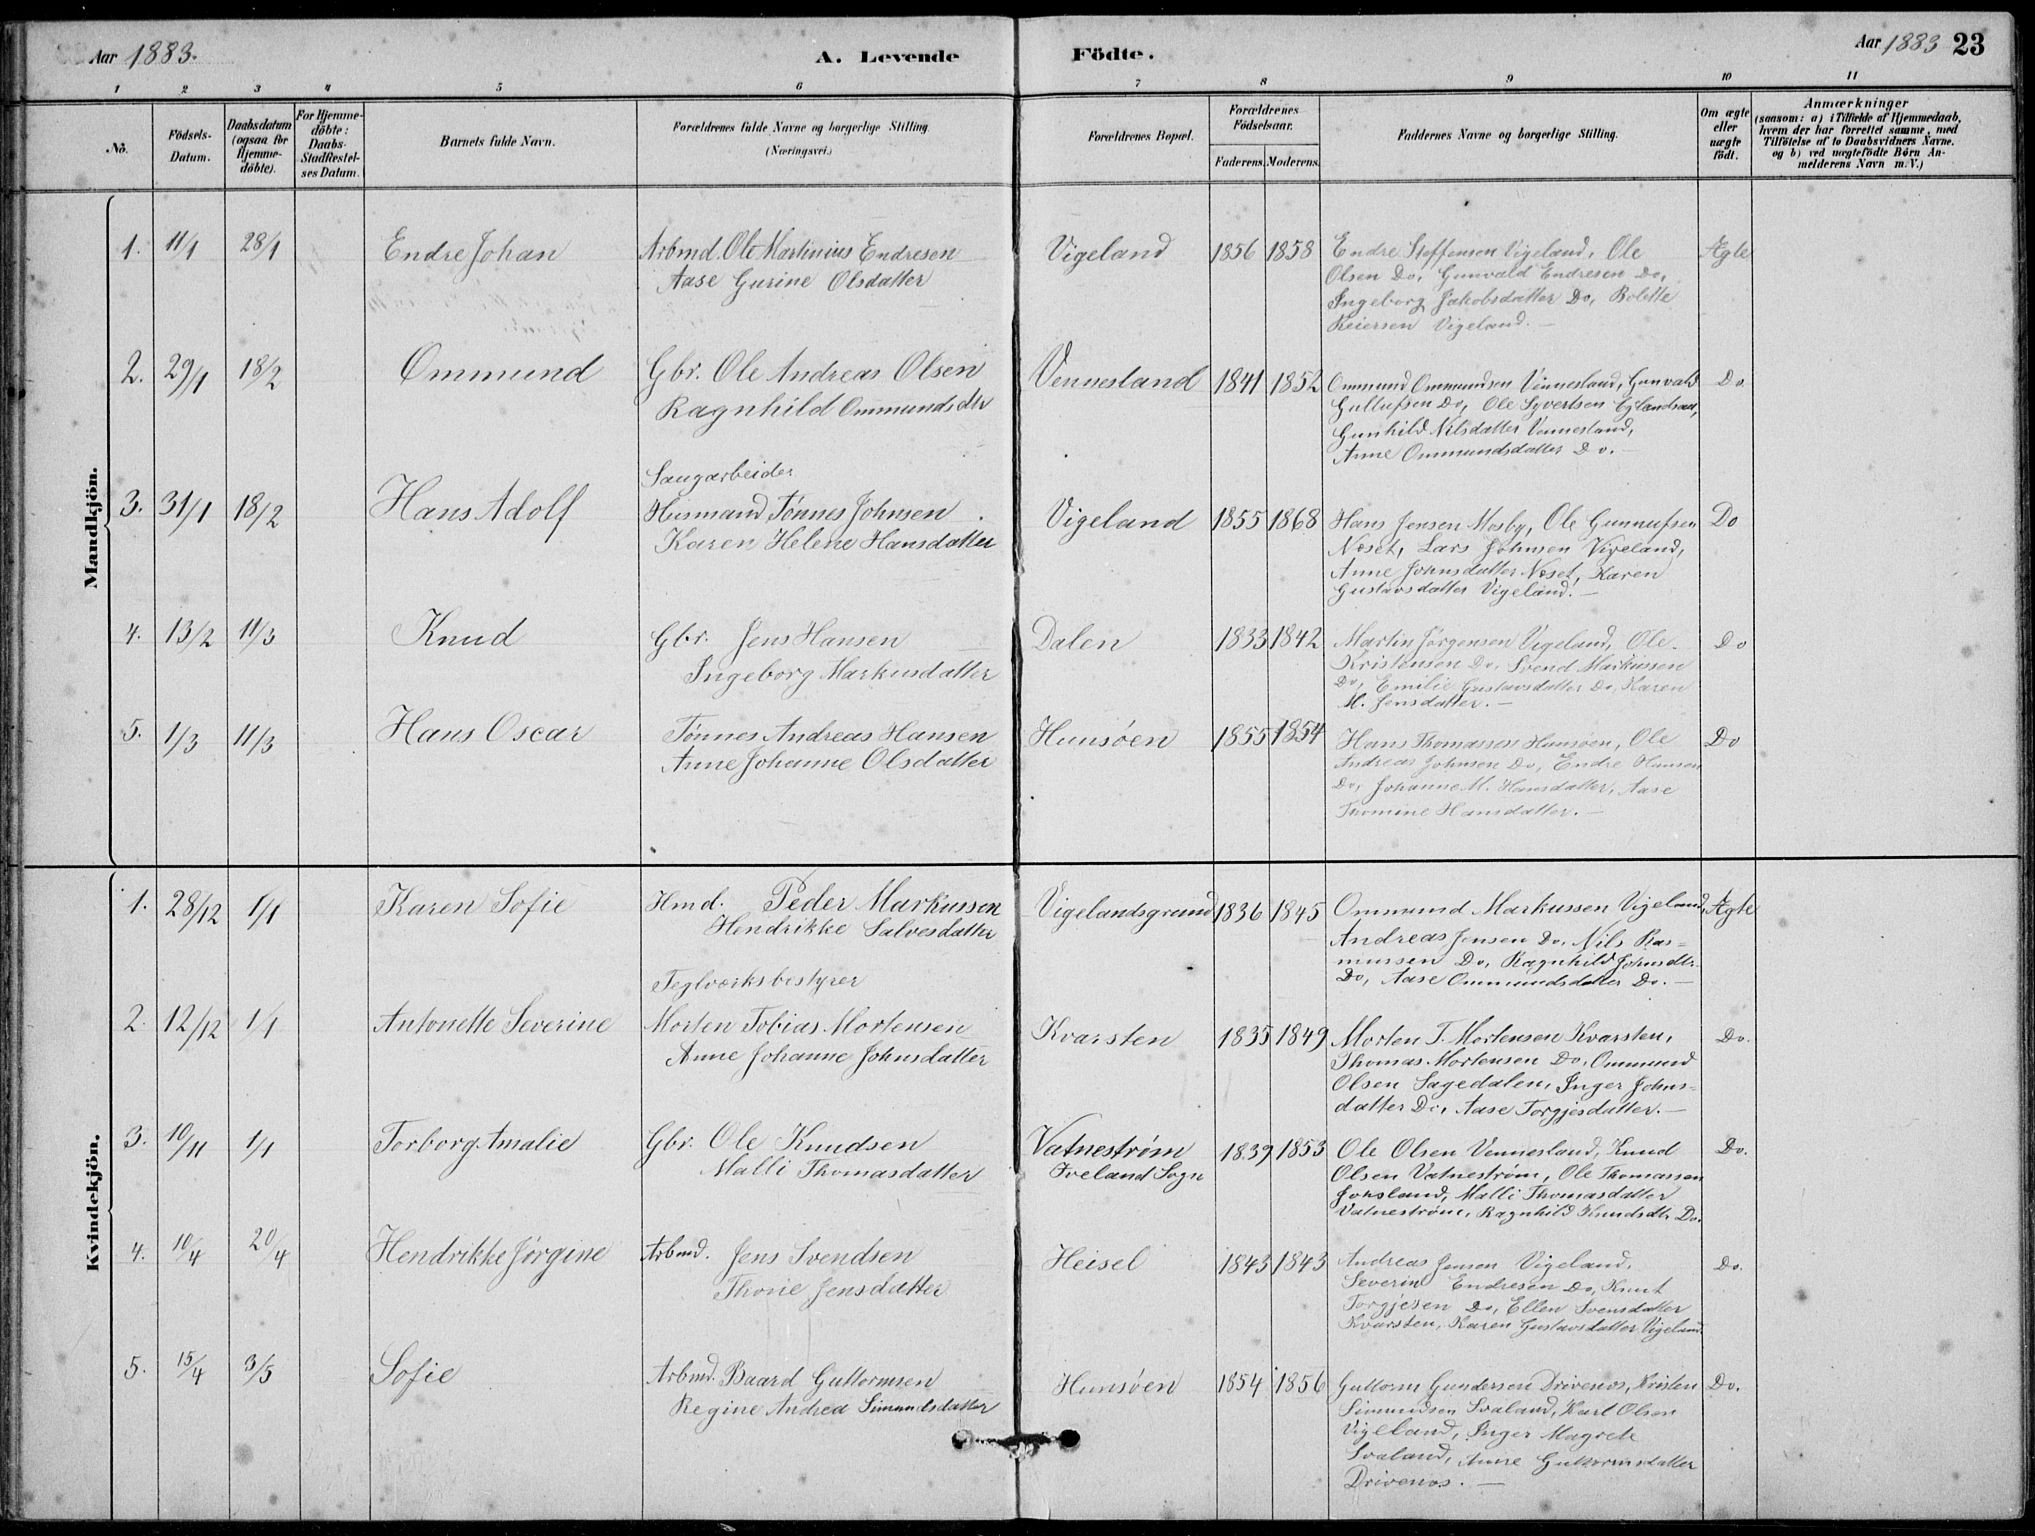 Aar 1883.
A. Levende Födte.
Aar 1883
23
1 2 3 4 5 6 7 8 9 10 11
No.
Födsels-Datum.
Daabsdatum (ogsaa for Hjemmedöbte).
For Hjemmedöbte: Daabs-Stadfestelses Datum.
Barnets fulde Navn.
Forældrenes fulde Navne og borgerlige Stilling.
(Næringsvei.)
Forældrenes Bopæl.
Forældrenes Födselsaar.
Faderens. Moderens.
Faddernes Navne og borgerlige Stilling.
Om ægte eller uægte födt.
Anmærkninger
(saasom: a) i Tilfælde af Hjemmedaab,
hvem der har forrettet samme, med
Tilföielse af to Daabsvidners Navne.
og b) ved uægtefödte Börn An-
melderens Navn m. V.)
Mandkjön.
1. 11/1 28/1 Endre Johan
Arbmd. Ole Martinius Endresen
Aase Gurine Olsdatter
Vigeland 1856 1858
Endre Steffensen Vigeland, Ole
Olsen Do, Gunvald Endresen Do,
Ingeborg Jakobsdatter Do, Bolette
Reiersen Vigeland. —
Ægte
2. 29/1 18/2 Ommund
Gbr. Ole Andreas Olsen
Ragnhild Ommundsdtr
Vennesland 1841 1852
Ommund Ommundsen Vennesland, Gunvald
Gullufsen Do, Ole Syvertsen
Gunhild Nilsdatter Vennesland,
Anne Ommundsdatter Do. —
Do
3. 31/1 18/2 Hans Adolf
Saugarbeider
Husmand Tønnes Johnsen
Karen Helene Hansdatter
Vigeland 1855 1868
Hans Jensen Mosby, Ole Gunnufsen
Neset, Lars Johnsen Vigeland,
Anne Johnsdatter Neset, Karen
Gustavsdatter Vigeland. —
Do
4. 13/2 11/3 Knud
Gbr. Jens Hansen
Ingeborg Markusdatter
Dalen 1833 1842
Martin Jørgensen Vigeland, Ole
Kristensen Do, Svend Markussen
Do, Emilie Gustavsdatter Do, Karen
M. Jensdatter. —
Do
5. 1/3 11/3 Hans Oscar
Tønnes Andreas Hansen
Anne Johanne Olsdatter
Hunsøen 1855 1854
Hans Thomassen Hunsøen, Ole
Andreas Johnsen Do, Endre Hansen
Do, Johanne M. Hansdatter, Aase
Thomine Hansdatter. —
Do
Kvindekjön.
1. 28/12 1/1 Karen Sofie
Hmd. Peder Markussen
Hendrikke Salvesdatter
Vigelandsgrund 1836 1845
Ommund Markussen Vigeland,
Andreas Jensen Do, Nils Ras=
mussen Do, Ragnhild Johnsdtr
Do, Aase Ommundsdatter Do. —
Ægte
2. 12/12 1/1 Antonette Severine
Teglværksbestyrer
Morten Tobias Mortensen
Anne Johanne Johnsdatter
Kvarsten 1835 1849
Morten T. Mortensen Kvarsten,
Thomas Mortensen Do, Ommund
Olsen Sagedalen, Inger Johns=
datter Do, Aase Torgjesdatter. —
Do.
3. 10/11 1/1 Torborg Amalie
Gbr. Ole Knudsen
Malli Thomasdatter
Vatnestrøm
Iveland Sogn
1839 1853
Ole Olsen Vennesland, Knud
Olsen Vatnestrøm, Ole Thomassen
Joksland, Malli Thomasdatter
Vatnestrøm, Ragnhild Knudsdtr Do.
Do.
4. 10/4 20/4 Hendrikke Jørgine
Arbmd. Jens Svendsen
Thorie Jensdatter
Heisel 1843 1843
Andreas Jensen Vigeland,
Severin Endresen Do, Knut
Torgjesen Do, Ellen Svensdatter
Kvarsten, Karen Gustavsdatter Vigeland.
Do.
5. 15/4 3/5 Sofie
Arbmd. Baard Guttormsen
Regine Andrea Simundsdatter
Hunsøen 1854 1856
Guttorm Gundersen Drivenes, Kristen
Simundsen Svaland, Karl Olsen
Vigeland, Inger Magrete
Svaland, Anne Guttormsdatter
Drivenes. —
Do.